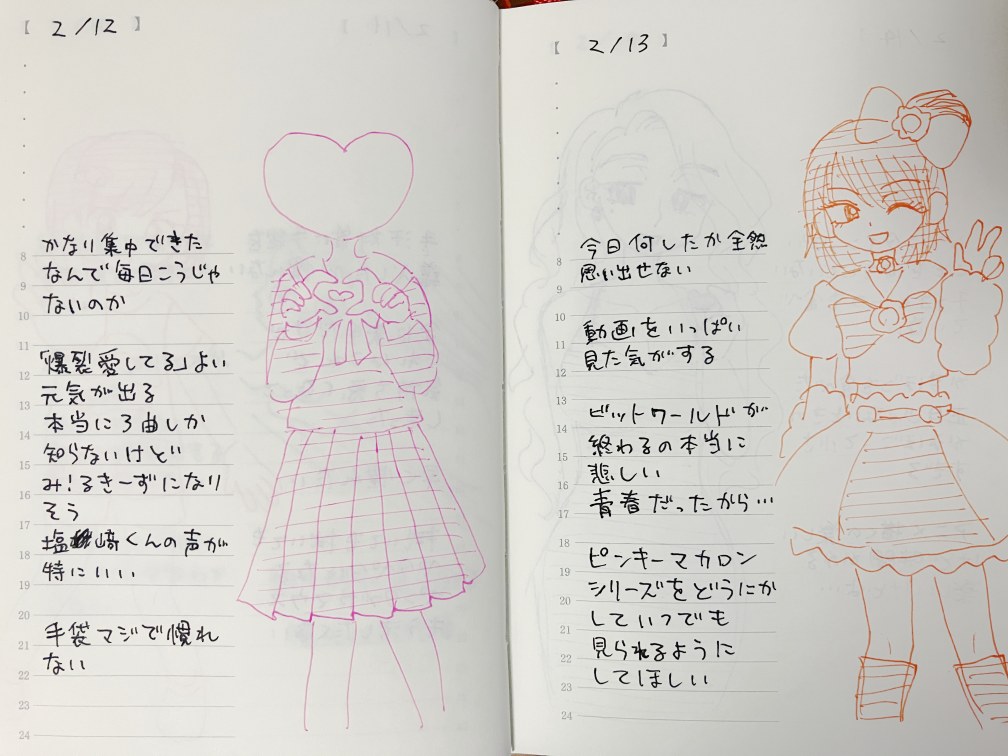 【 2/12 】
かなり集中できた
なんで毎日こうじゃ
ないのか
「爆裂愛してる」よい
元気が出る
本当に3曲しか
知らないけど
み!るきーずになり
そう
塩﨑くんの声が
特にいい
手袋マジで慣れ
ない
8
9
10
11
12
13
14
15
16
17
18
19
20
21
22
23
24
【 2/13 】
今日何したか全然
思い出せない
動画をいっぱい
見た気がする
ビットワールドが
終わるの本当に
悲しい
青春だったから…
ピンキーマカロン
シリーズをどうにか
していつでも
見られるように
してほしい
8
9
10
11
12
13
14
15
16
17
18
19
20
21
22
23
24